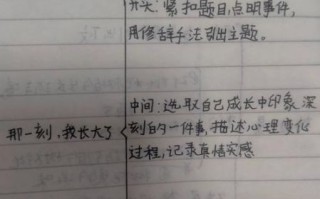 开头:紧扣题目,点明事件,
用修辞手法引出主题。
中间:选取自己成长中印象深
那一刻,我长大了
刻的一件事,描述心理变化
过程,记录真情实感